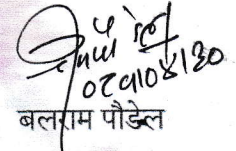 ०८१।०४।३०
बलराम पौडेल